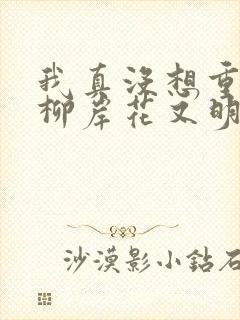 我真没想重
柳岸花又明
沙漠影小鉆石